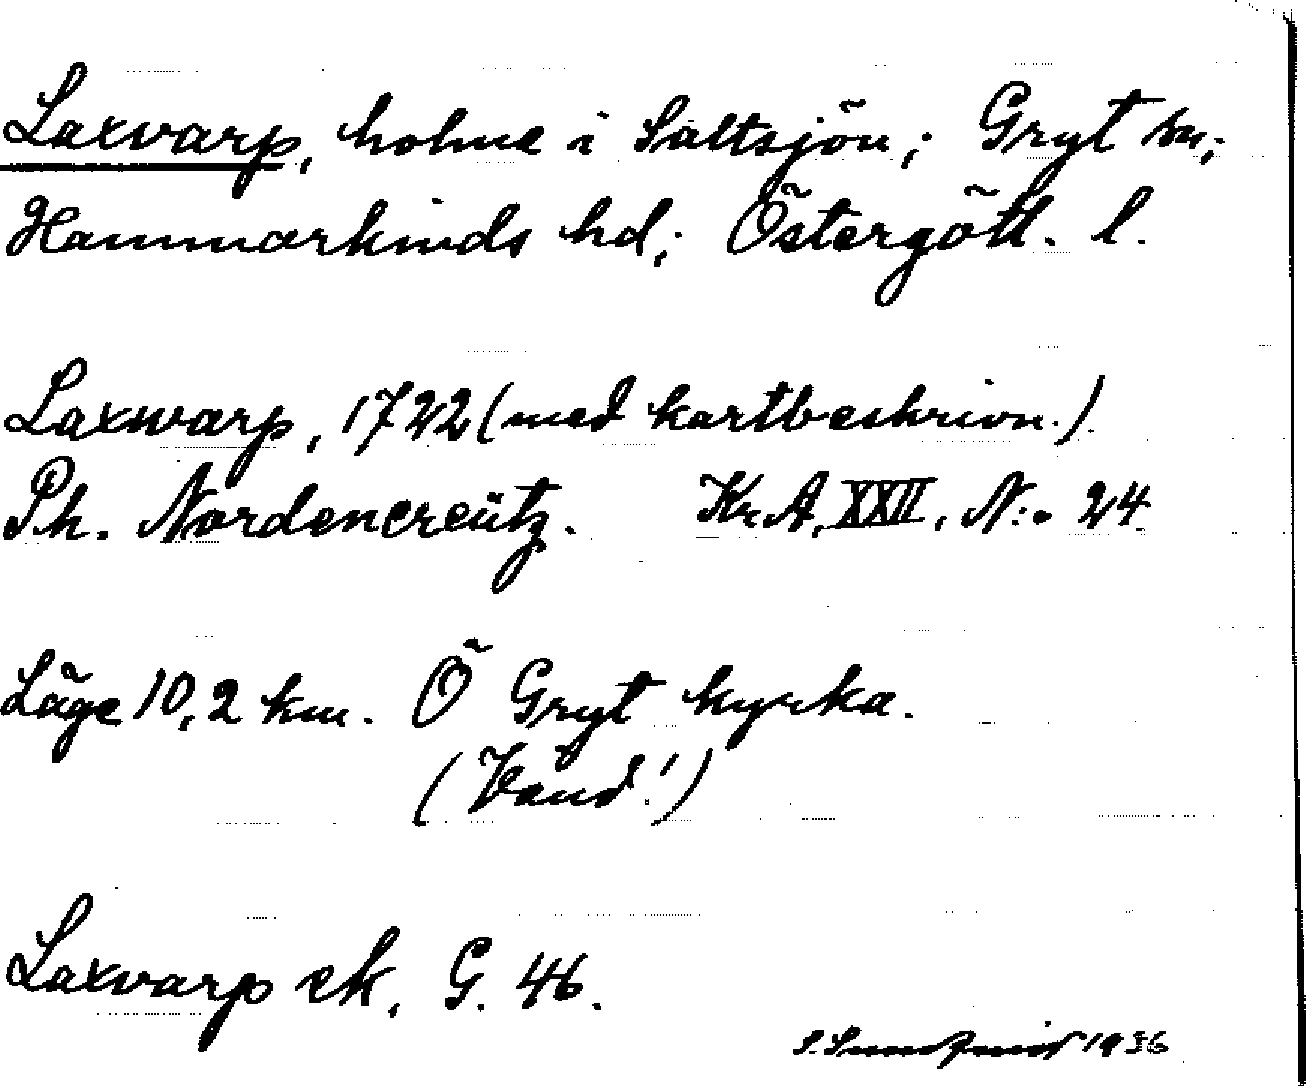 Laxvarp, holme i Saltsjön; Gryt sn;
Hammarkinds hd; Östergötl. l.
Laxwarp, 1722 (med kartbeskrivn.)
Ph. Nordencreütz. Kr.A. XXII, N:o 24
Läge 10,2 km. Ö Gryt kyrka.
(Vänd!)
Laxvarp ek. G. 46.
S. Sundqvist 1936